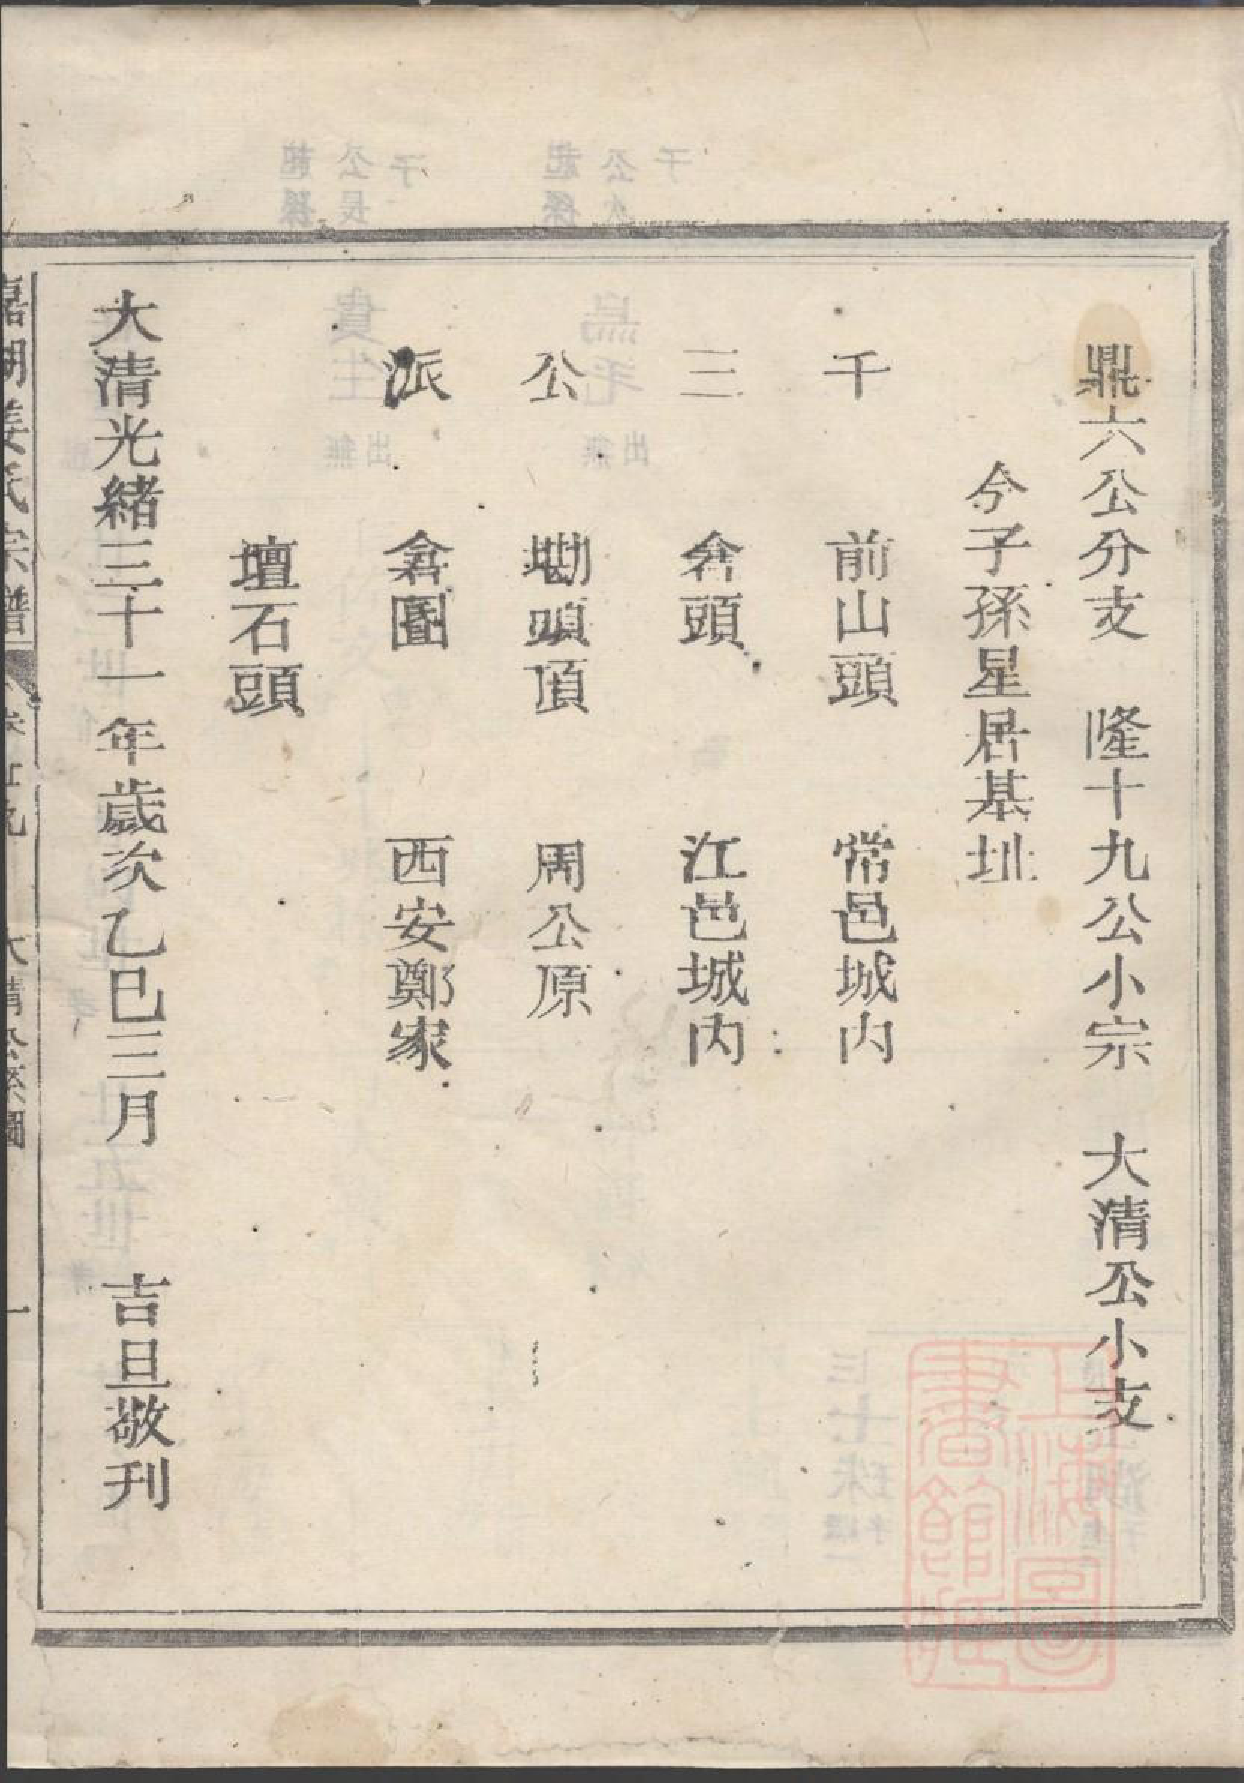 鼎六公分支　隆十九公小宗　大清公小支
今子孫星居基址
千　前山頭　常邑城内
三　倉頭　江邑城内
公　墈頭頂　周公原
派　倉圕　西安鄭家
壇石頭
大清光緒三十一年歲次乙巳三月　吉旦敬刊
姜氏宗譜　大清公系圖　一
上海圖書館藏